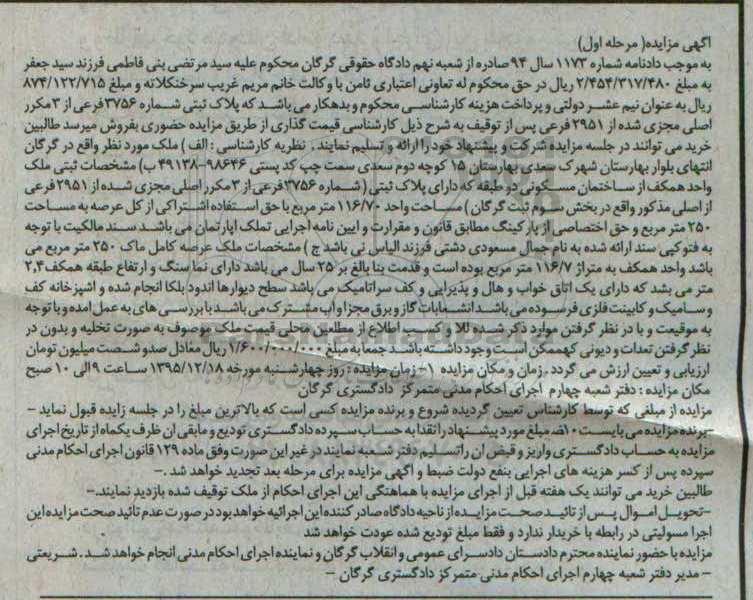 آگهی مزایده( مرحله اول)
به موجب دادنامه شماره ۱۱۷۳ سال ۹۴ صادره از شعبه نهم دادگاه حقوقی گرگان محکوم علیه سید مرتضی بنی فاطمی فرزند سید جعفر
به مبلغ ۲/۴۵۴/۳۱۷/۴۸۰ ریال در حق محکوم له تعاونی اعتباری ثامن با وکالت خانم مریم غریب سرخنکلاته و مبلغ ۸۷۴/۱۲۲/۷۱۵
ریال به عنوان نیم عشر دولتی و پرداخت هزینه کارشناسی محکوم و بدهکار می باشد که پلاک ثبتی شماره ۳۷۵۶فرعی از ۳مکرر
اصلی مجزی شده از ۲۹۵۱ فرعی پس از توقیف به شرح ذیل کارشناسی قیمت گذاری از طریق مزایده حضوری بفروش میرسد طالبین
خرید می توانند در جلسه مزایده شرکت و پیشنهاد خود را ارائه و تسلیم نمایند . نظریه کارشناسی : الف ) ملک مورد نظر واقع در گرگان
انتهای بلوار بهارستان شهرک سعدی بهارستان ۱۵ کوچه دوم سعدی سمت چپ کد پستی ۹۸۶۴۶-۴۹۱۳۸ ب) مشخصات ثبتی ملک
واحد همکف از ساختمان مسکونی دو طبقه که دارای پلاک ثبتی (شماره ۳۷۵۶فرعی از ۳مکرر اصلی مجزی شده از ۲۹۵۱ فرعی
از اصلی مذکور واقع در بخش سوم ثبت گرگان ) مساحت واحد ۱۱۶/۷۰ متر مربع با حق استفاده اشتراکی از کل عرصه به مساحت
۲۵۰ متر مربع و حق اختصاصی از پارکینگ مطابق قانون و مقررات و ایین نامه اجرایی تملک اپارتمان می باشد سند مالکیت با توجه
به فتوکپی سند ارائه شده به نام جمال مسعودی دشتی فرزند الیاس نی باشد ج ) مشخصات ملک عرصه کامل ماک ۲۵۰ متر مربع می
باشد واحد همکف به متراژ ۱۱۶/۷ متر مربع بوده است و قدمت بنا بالغ بر ۲۵ سال می باشد دارای نما سنگ و ارتفاع طبقه همکف ۲,۴
متر می بشد که دارای یک اتاق خواب و هال و پذیرایی و کف سراتامیک می باشد سطح دیوارها اندود بلکا انجام شده و اشپزخانه کف
و سامیک و کابینت فلزی فرسوده می باشد انشعابات گاز و برق مجزا و اب مشترک می باشد با بررسی های به عمل امده و با توجه
به موقیعت و با در نظر گرفتن موارد ذکر شده للا و کسب اطلاع از مطلعین محلی قیمت ملک موصوف به صورت تخلیه و بدون در
نظر گرفتن تعدات و دیونی کهممکن است وجود داشته باشد جمعا به مبلغ ۱/۶۰۰/۰۰۰/۰۰۰ ریال معادل صدو شصت میلیون تومان
ارزیابی و تعیین ارزش می گردد .زمان و مکان مزایده ۱- زمان مزایده : روز چهارشنبه مورخه ۱۳۹۵/۱۲/۱۸ ساعت ۹ الی ۱۰ صبح
مکان مزایده : دفتر شعبه چهارم اجرای احکام مدنی متمرکز دادگستری گرگان
مزایده از مبلغی که توسط کارشناس تعیین گردیده شروع و برنده مزایده کسی است که بالاترین مبلغ را در جلسه زایده قبول نماید –
-برنده مزایده می بایست ۱۰٪ مبلغ مورد پیشنهاد را نقدا به حساب سپرده دادگستری تودیع و مابقی ان ظرف یکماه از تاریخ اجرای
مزایده به حساب دادگستری واریز و قبض ان را تسلیم دفتر شعبه نمایند در غیر این صورت وفق ماده ۱۲۹ قانون اجرای احکام مدنی
سپرده پس از کسر هزینه های اجرایی بنفع دولت ضبط و آگهی مزایده برای مرحله بعد تجدید خواهد شد .–
طالبین خرید می توانند یک هفته قبل از اجرای مزایده با هماهنگی این اجرای احکام از ملک توقیف شده بازدید نمایند.–
-تحویل اموال پس از تائید صحت مزایده از ناحیه دادگاه صادر کننده این اجرائیه خواهد بود در صورت عدم تائید صحت مزایده این
اجرا مسولیتی در رابطه با خریدار ندارد و فقط مبلغ تودیع شده عودت خواهد شد
مزایده با حضور نماینده محترم دادستان دادسرای عمومی و انقلاب گرگان و نماینده اجرای احکام مدنی انجام خواهد شد . شریعتی
– مدیر دفتر شعبه چهارم اجرای احکام مدنی متمرکز دادگستری گرگان –